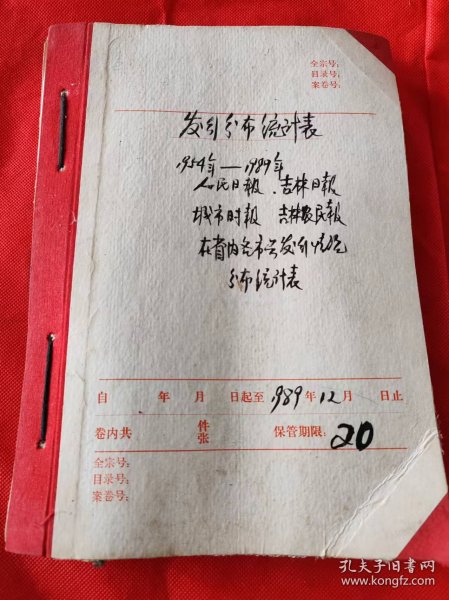 全宗号:
目录号:
案卷号:
发行分布统计表
1954年—1989年
人民日报、吉林日报
城市时报 吉林农民报
在省内各市县发行情况
分布统计表
自 年 月 日起至1989年12月 日止
卷内共 件 张 保管期限: 20
全宗号:
目录号:
案卷号:
孔夫子旧书网
www.kongfz.com